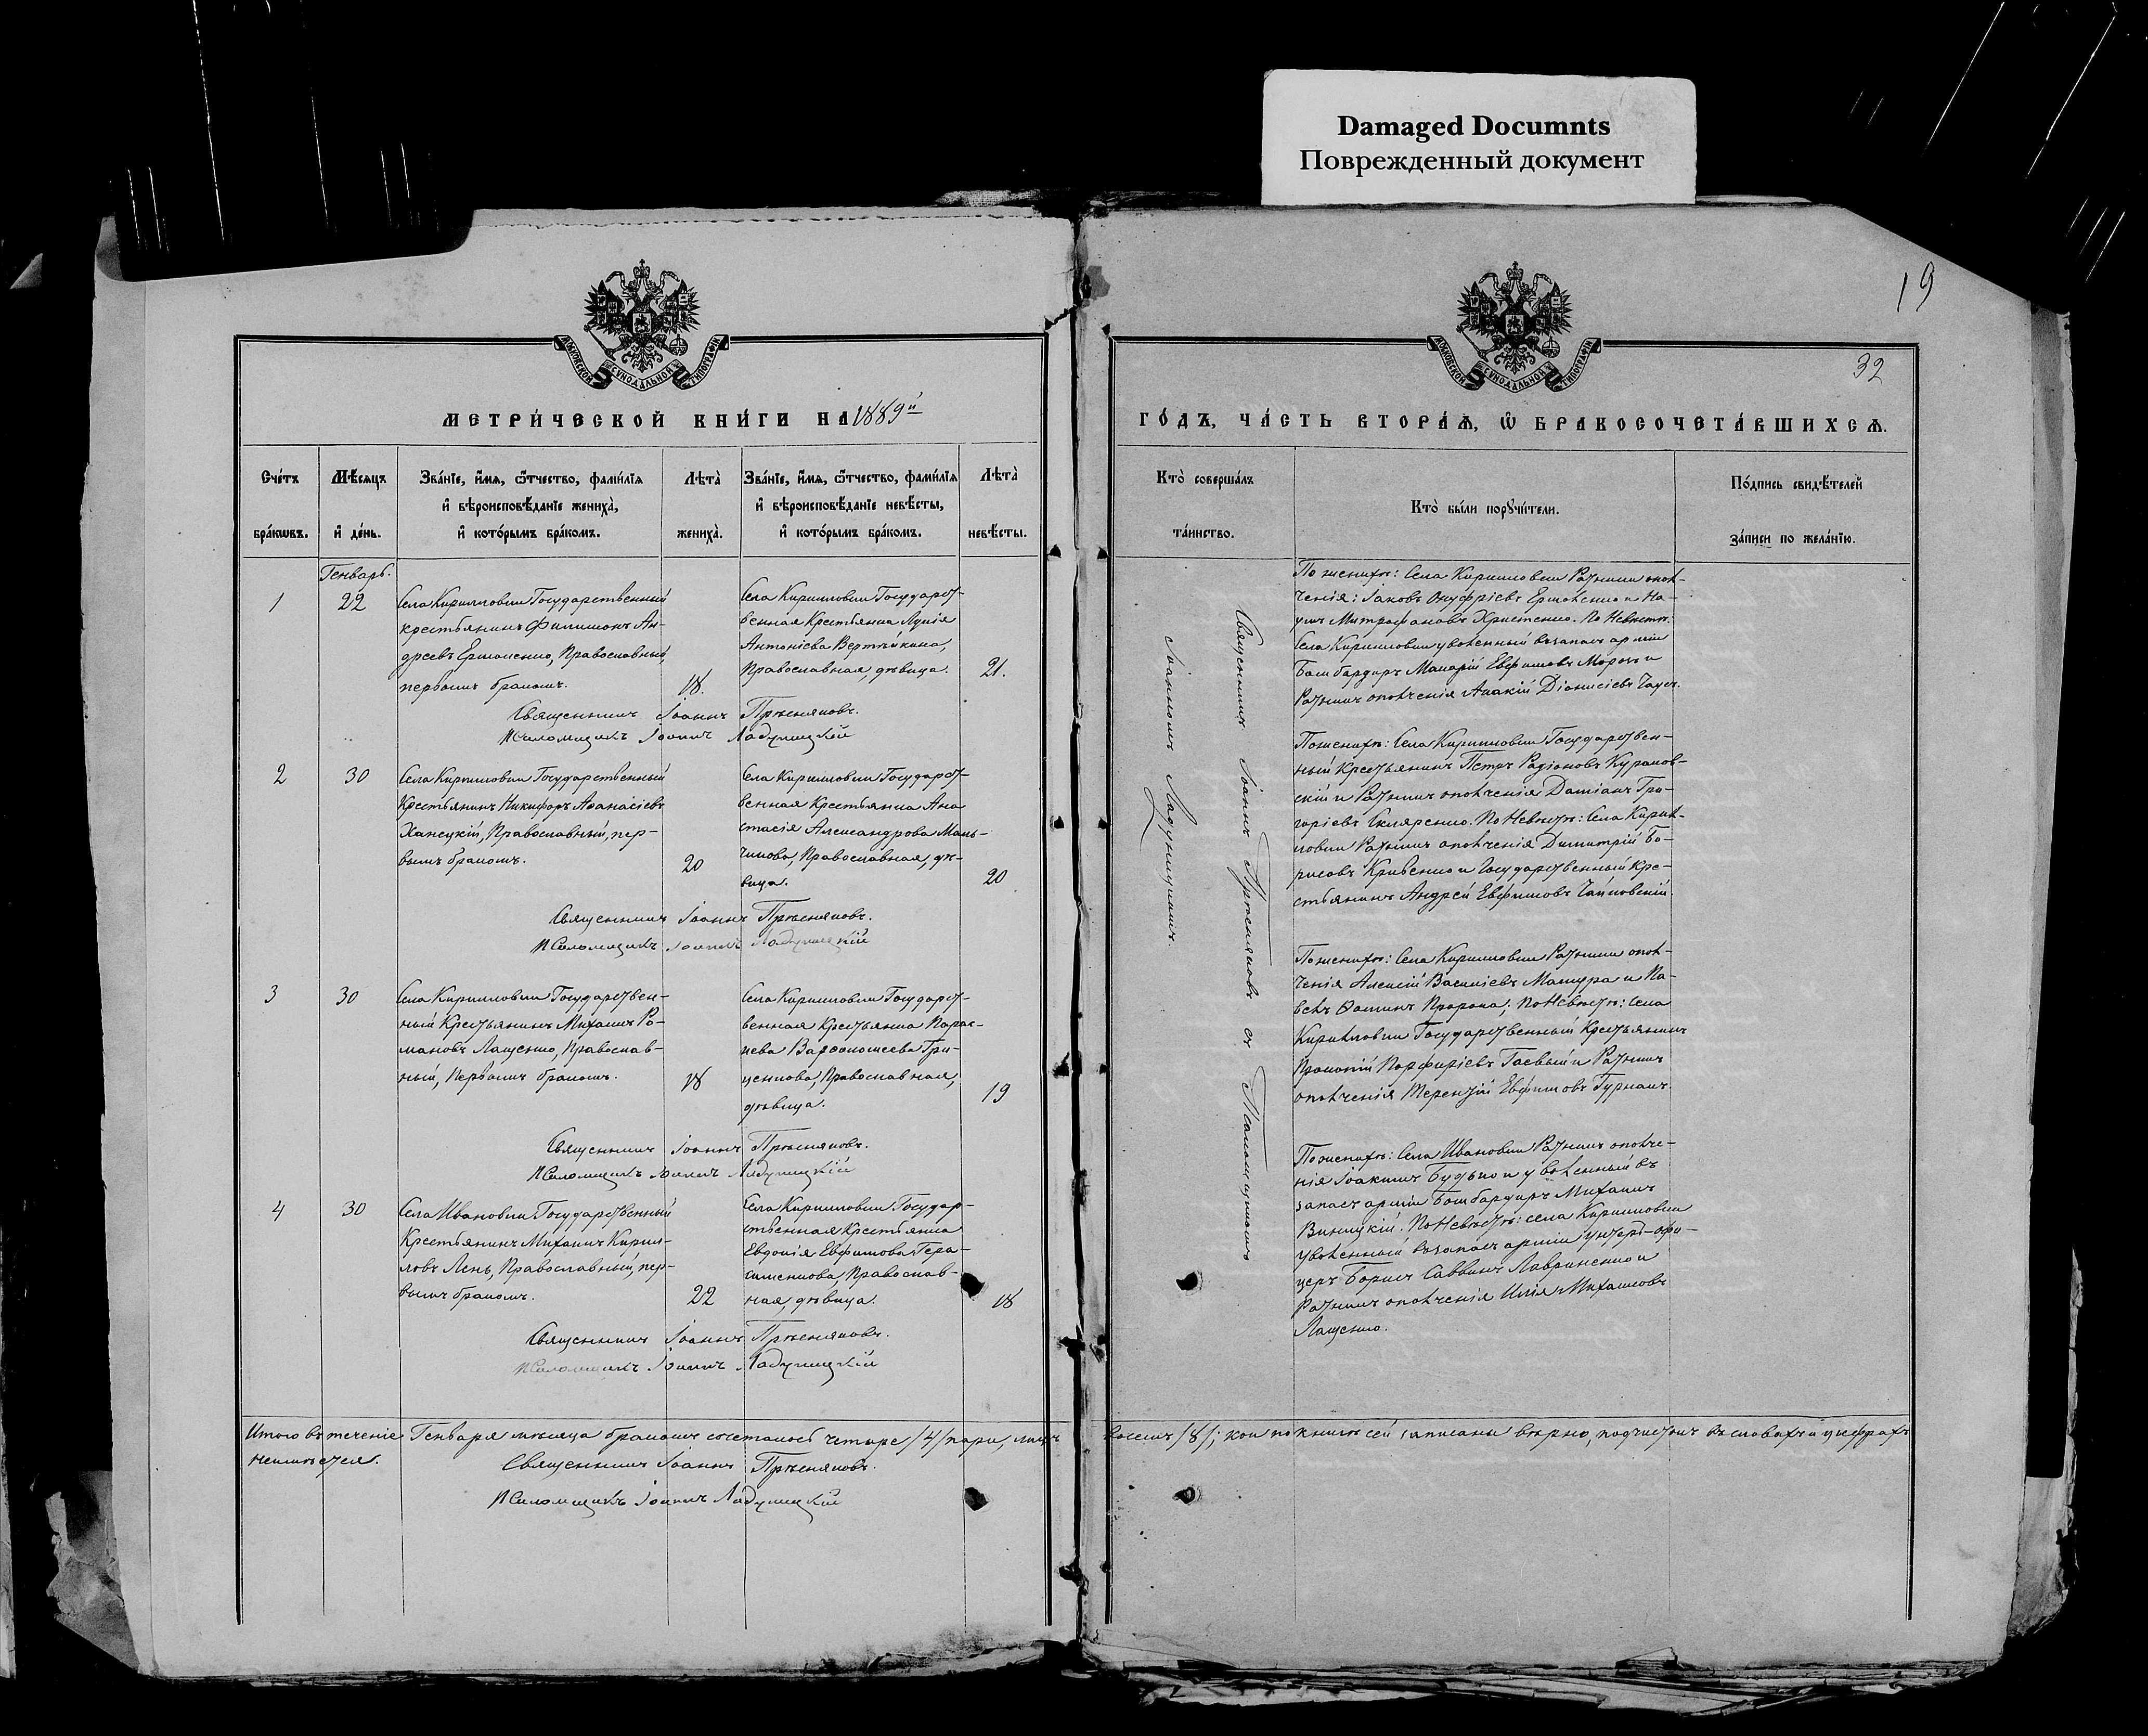 Damaged Documnts
Поврежденный документ
19
32
МОСКОВСКОЙ СѴНОДАЛЬНОЙ ТИПОГРАФІИ
МОСКОВСКОЙ СѴНОДАЛЬНОЙ ТИПОГРАФІИ
МЕТРИ́ЧЕСКОЙ КНИ́ГИ НА 1889й
ГО́ДЪ, ЧА́СТЬ ВТОРА́Ѧ, Ѽ БРАКОСОЧЕТА́ВШИХСѦ.
Сче́тъ
бра́кѡвъ.
Мѣ́сяцъ
и҆ де́нь.
Зва́нїе, и҆́мя, ѻ҆́тчество, фами́лїя
и҆ вѣроисповѣ́данїе жениха̀,
и҆ кото́рымъ бра́комъ.
Лѣта̀
жениха̀.
Зва́нїе, и҆́мя, ѻ҆́тчество, фами́лїя
и҆ вѣроисповѣ́данїе невѣ́сты,
и҆ кото́рымъ бра́комъ.
Лѣта̀
невѣ́сты.
Кто̀ соверша́лъ
та́инство.
Кто̀ бы́ли порꙋчи́тели.
По́дпись свидѣ́телей
за́писи по жела́нїю.
Генварь.
1
22
Села Кирилловки Государственный
крестьянинъ Филимонъ Ан-
дреевъ Ермоленко, Православный,
первымъ бракомъ.
18.
Села Кирилловки Государст-
венная Крестьянка Лукія
Антоніева Вертѣйкина,
Православная, дѣвица.
21.
Священникъ Іоаннъ Прѣсняковъ.
Псаломщикъ Іоаннъ Ладушицкій
2
30
Села Кирилловки Государственный
Крестьянинъ Никифоръ Аѳанасіевъ
Ханецкій, Православный, пер-
вымъ бракомъ.
20
Села Кирилловки Государст-
венная Крестьянка Ана
стасія Александрова Мань-
чикова, Православная, дѣ-
вица.
20
Священникъ Іоаннъ Прѣсняковъ.
Псаломщикъ Іоаннъ Ладушицкій
3
30
Села Кирилловки Государствен-
ный Крестьянинъ Михаилъ Ро-
мановъ Лащенко, Православ-
ный, Первымъ бракомъ.
18
Села Кирилловки Государст-
венная Крестьянка Парас-
кева Варѳоломеева Гри-
ценкова, Православная,
дѣвица.
19
Священникъ Іоаннъ Прѣсняковъ.
Псаломщикъ Іоаннъ Ладушицкій
4
30
Села Ивановки Государственный
Крестьянинъ Михаилъ Кирил-
ловъ Лень, Православный, пер-
вымъ бракомъ.
22
Села Кирилловки Государ-
ственная Крестьянка
Евдокія Евфимова Гера-
сименкова, Православ-
ная, дѣвица.
18
Священникъ Іоаннъ Прѣсняковъ.
Псаломщикъ Іоаннъ Ладушицкій
Священникъ Іоаннъ Прѣсняковъ съ Псаломщикомъ
Іоанномъ Ладушицкимъ.
По женихѣ: Села Кирилловки Ратники опол-
ченія: Іаковъ Онуфріевъ Ермоленко и На-
умъ Митрофановъ Христенко. По Невѣстѣ:
Села Кирилловки уволенный въ запасъ арміи
Бомбардиръ Макарій Евфимовъ Морозъ и
Ратникъ ополченія Акакій Діонисіевъ
По женихѣ: Села Кирилловки Государствен-
ный Крестьянинъ Петръ Родіоновъ Кураков-
скій и Ратникъ ополченія Даміанъ Гри-
горіевъ Скляренко. По Невѣстѣ: Села Кирил-
ловки Ратникъ ополченія Димитрій Бо-
рисовъ Кривенко и Государственный Кре-
стьянинъ Андрей Евфимовъ Чайковскій.
По женихѣ: Села Кирилловки Ратники опол-
ченія Алексій Василіевъ Мащура и Па-
велъ Ѳоминъ Пророка; По Невѣстѣ: Села
Кирилловки Государственный Крестьянинъ
Прокопій Порфиріевъ Гаевый и Ратникъ
ополченія Терентій Евфимовъ Гурналъ.
По женихѣ: Села Ивановки Ратникъ ополче-
нія Іоакимъ Будько и уволенный въ
запасъ арміи Бомбардиръ Михаилъ
Виницкій. По Невѣстѣ: села Кирилловки
Уволенный въ запасъ арміи унтеръ-офи-
церъ Борисъ Саввинъ Лавриненко и
Ратникъ ополченія Илія Михаиловъ
Лащенко.
Итого въ теченіе Генваря мѣсяца бракомъ сочеталось четыре /4/ пары, лицъ восемь /8/; кои по книгѣ сей записаны вѣрно, подчистокъ въ словахъ и цифрахъ
неимѣется.
Священникъ Іоаннъ Прѣсняковъ.
Псаломщикъ Іоаннъ Ладушицкій